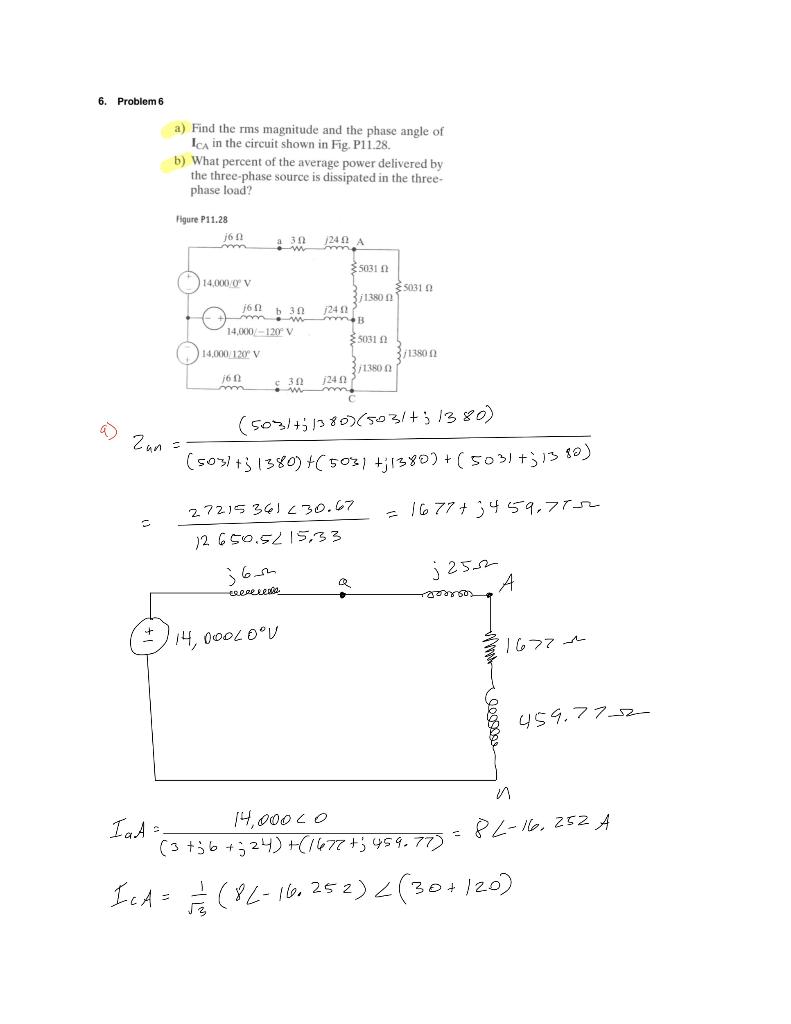 6. Problem 6
a) Find the rms magnitude and the phase angle of
I_CA in the circuit shown in Fig. P11.28.
b) What percent of the average power delivered by
the three-phase source is dissipated in the three-
phase load?
Figure P11.28
j6 Ω a 3 Ω j24 Ω A
5031 Ω
14,000/0° V 5031 Ω
j1380 Ω
j6 Ω b 3 Ω j24 Ω
B
14,000/−120° V
5031 Ω
14,000/120° V j1380 Ω
j1380 Ω
j6 Ω c 3 Ω j24 Ω
C
a) Zun = (5031+j1380)(5031+j1380)
(5031+j1380)+(5031+j1380)+(5031+j1380)
= 27215361∠30.67 / 12650.5∠15.33 = 1677+j459.77Ω
j6Ω a j25Ω A
+ −
14,000∠0°V 1677Ω
459.77Ω
n
IaA = 14,000∠0 / (3+j6+j24)+(1677+j459.77) = 8∠-16.252 A
IcA = 1/√3 (8∠-16.252)∠(30+120)